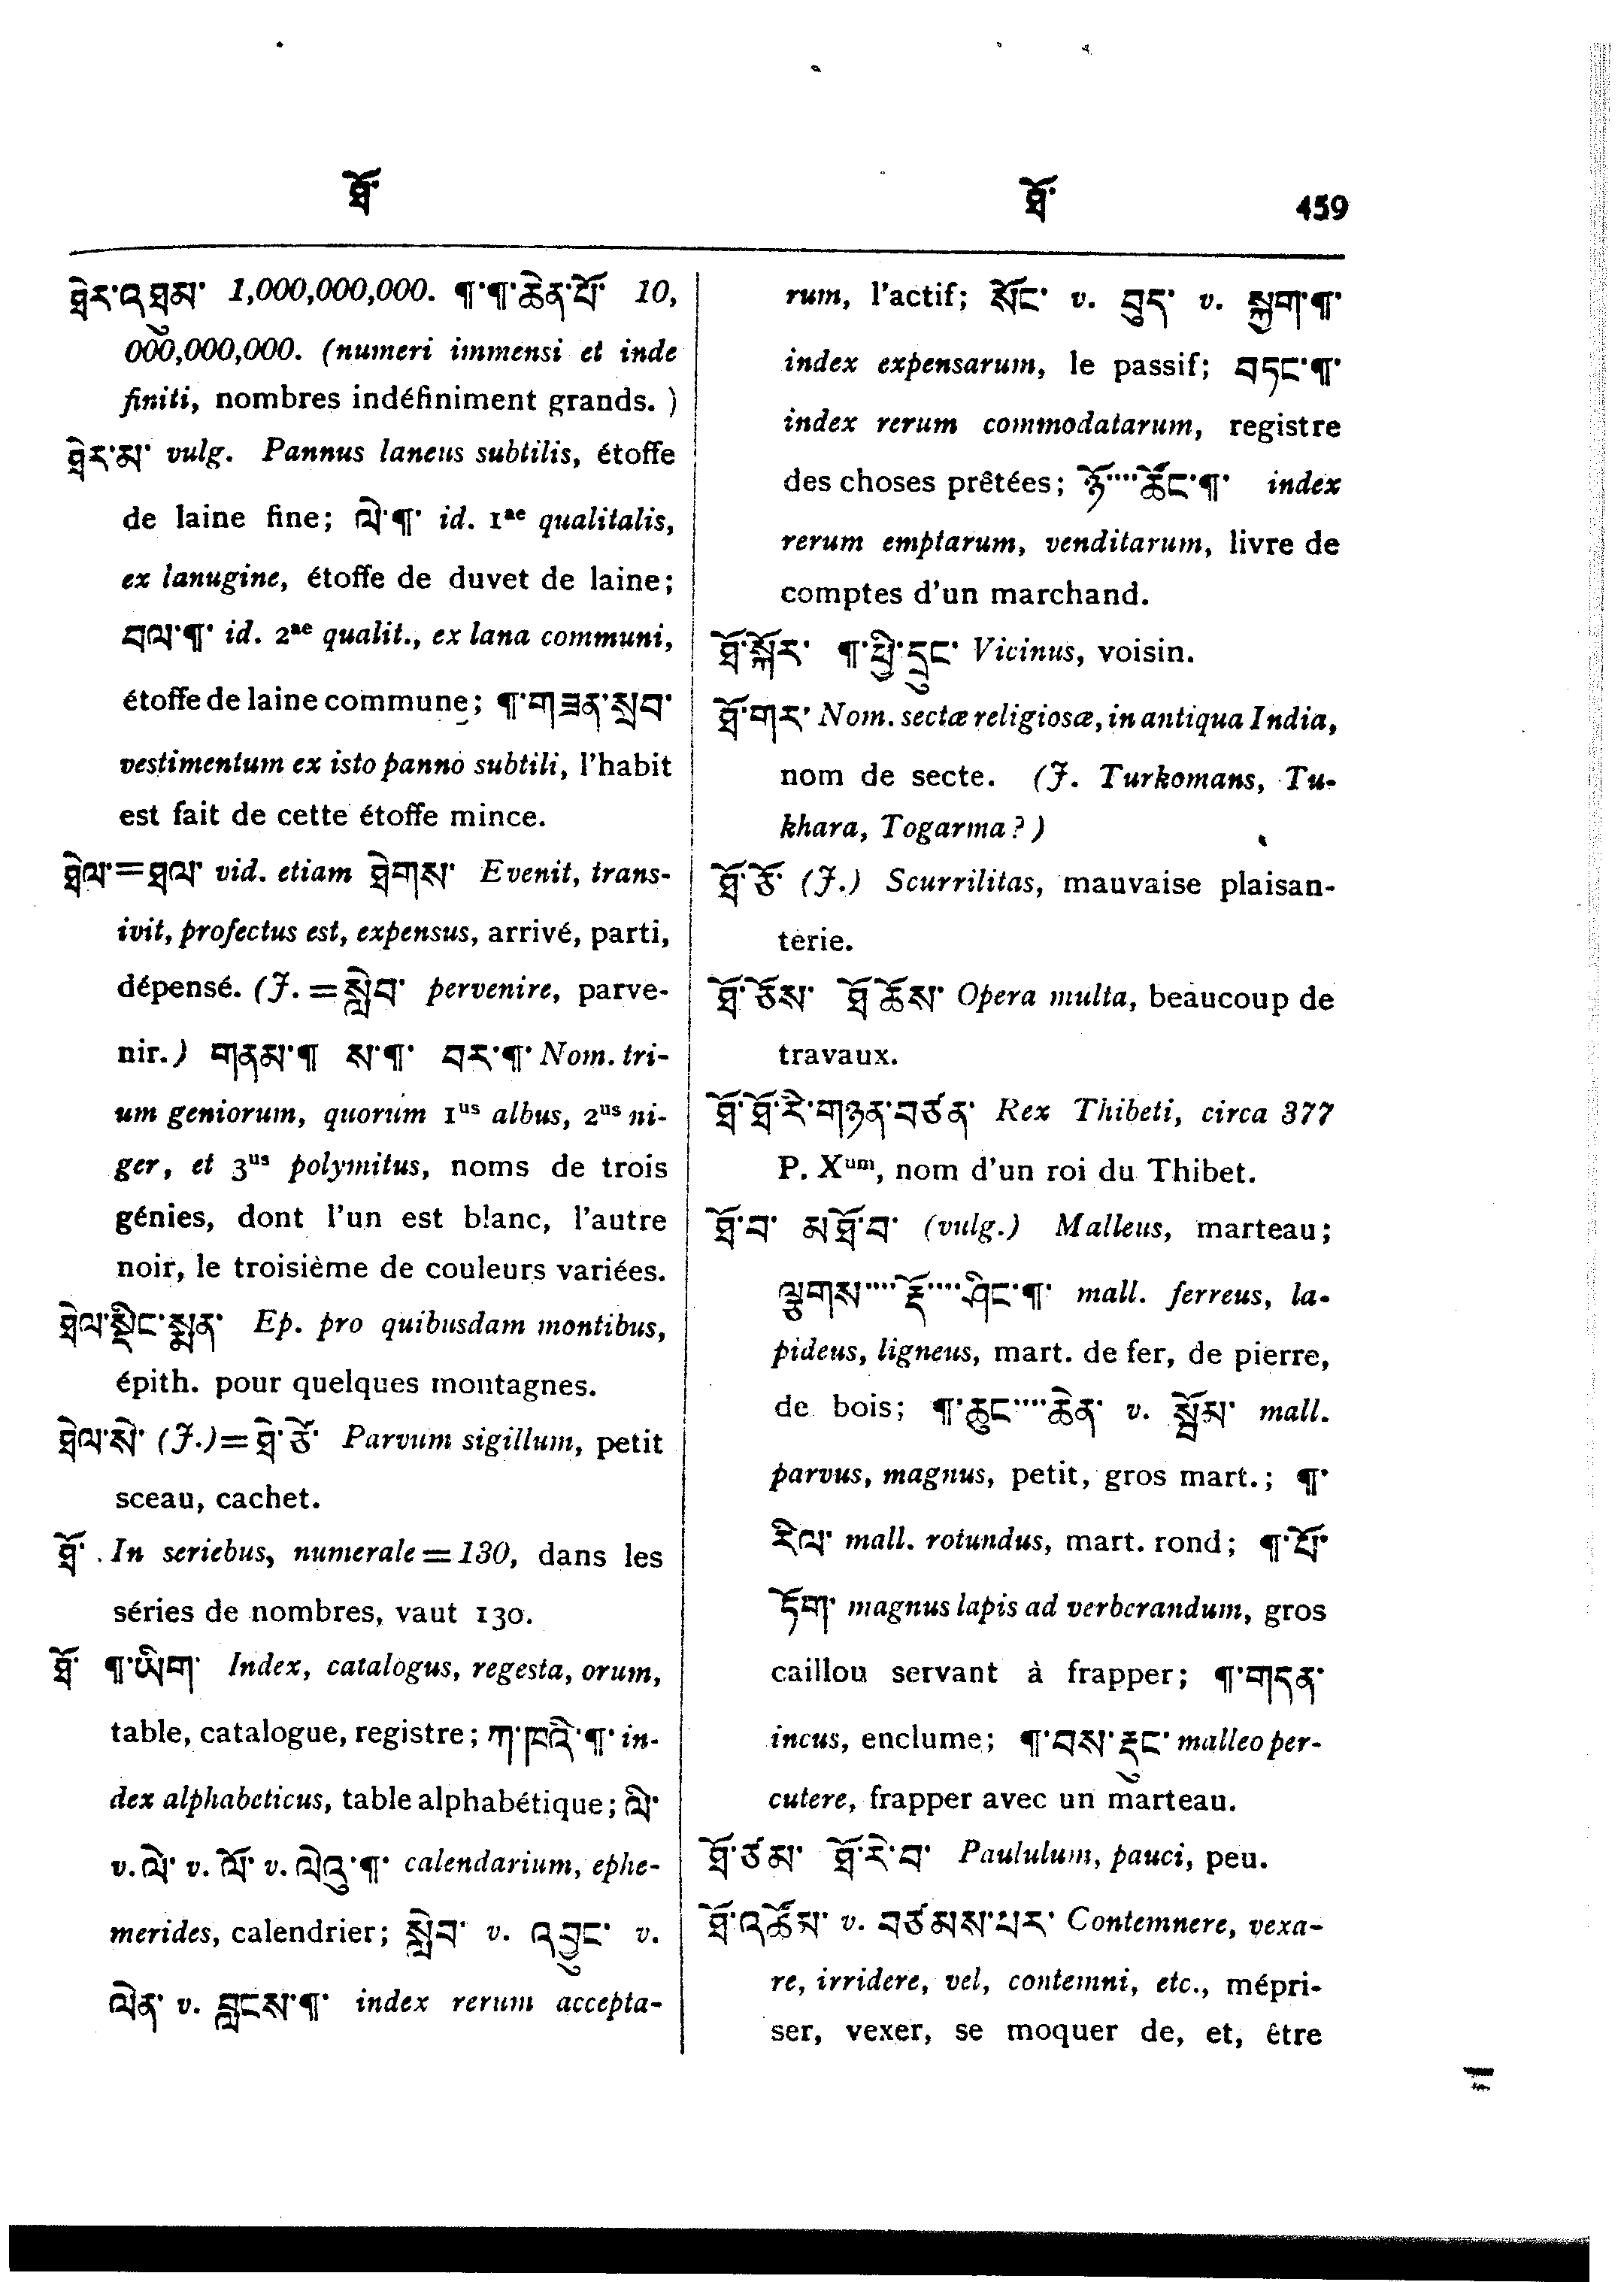 ཐོ་
ཐོ་ 459
ཐེར་འཐུམ་ 1,000,000,000. ¶་¶་ཆེན་པོ་ 10,
000,000,000. (numeri immensi et inde
finiti, nombres indéfiniment grands. )
ཐེར་མ་ vulg. Pannus laneus subtilis, étoffe
de laine fine; ལེ་¶་ id. 1ae qualitalis,
ex lanugine, étoffe de duvet de laine;
བལ་¶་ id. 2ae qualit., ex lana communi,
étoffe de laine commune; ¶་གཟན་སྲབ་
vestimentum ex isto panno subtili, l'habit
est fait de cette étoffe mince.
ཐེལ་=ཐལ་ vid. etiam ཐེགས་ Evenit, trans-
ivit, profectus est, expensus, arrivé, parti,
dépensé. (J. = སླེབ་ pervenire, parve-
nir.) གནམ་¶ ས་¶་ བར་¶་ Nom. tri-
um geniorum, quorum 1us albus, 2us ni-
ger, et 3us polymitus, noms de trois
génies, dont l'un est blanc, l'autre
noir, le troisième de couleurs variées.
ཐེལ་སྡིང་སྨན་ Ep. pro quibusdam montibus,
épith. pour quelques montagnes.
ཐེལ་སེ་ (J.)=ཐེ་ཙེ་ Parvum sigillum, petit
sceau, cachet.
ཐོ་ In seriebus, numerale = 130, dans les
séries de nombres, vaut 130.
ཐོ་ ¶་ཡིག་ Index, catalogus, regesta, orum,
table, catalogue, registre; ཀ་ཁའི་¶་ in-
dex alphabeticus, table alphabétique; ལི་
v. ལེ་ v. ལོ་ v. ལེའུ་¶་ calendarium, ephe-
merides, calendrier; སླེབ་ v. འབྱུང་ v.
ལེན་ v. བླངས་¶་ index rerum accepta-
rum, l'actif; སོང་ v. བུད་ v. སྐྱག་¶་
index expensarum, le passif; བཏང་¶་
index rerum commodatarum, registre
des choses prêtées; ཉོ་····ཚོང་¶་ index
rerum emptarum, venditarum, livre de
comptes d'un marchand.
ཐོ་སྐོར་ ¶་ཕྱི་དྲུང་ Vicinus, voisin.
ཐོ་གར་ Nom. sectæ religiosæ, in antiqua India,
nom de secte. (J. Turkomans, Tu-
khara, Togarma? )
ཐོ་ཅོ་ (J.) Scurrilitas, mauvaise plaisan-
terie.
ཐོ་ཅོས་ ཐོ་ཆོས་ Opera multa, beaucoup de
travaux.
ཐོ་ཐོ་རི་གཉན་བཙན་ Rex Thibeti, circa 377
P. Xum, nom d'un roi du Thibet.
ཐོ་བ་ མཐོ་བ་ (vulg.) Malleus, marteau;
ལྕགས་····རྡོ་····ཤིང་¶་ mall. ferreus, la-
pideus, ligneus, mart. de fer, de pierre,
de bois; ¶་ཆུང་····ཆེན་ v. སྦོམ་ mall.
parvus, magnus, petit, gros mart.; ¶་
རིལ་ mall. rotundus, mart. rond; ¶་པོ་
ཏོག་ magnus lapis ad verberandum, gros
caillou servant à frapper; ¶་གདན་
incus, enclume; ¶་བས་རྡུང་ malleo per-
cutere, frapper avec un marteau.
ཐོ་ཙམ་ ཐོ་རེ་བ་ Paululum, pauci, peu.
ཐོ་འཚོམ་ v. བཙམས་པར་ Contemnere, vexa-
re, irridere, vel, contemni, etc., mépri-
ser, vexer, se moquer de, et, être